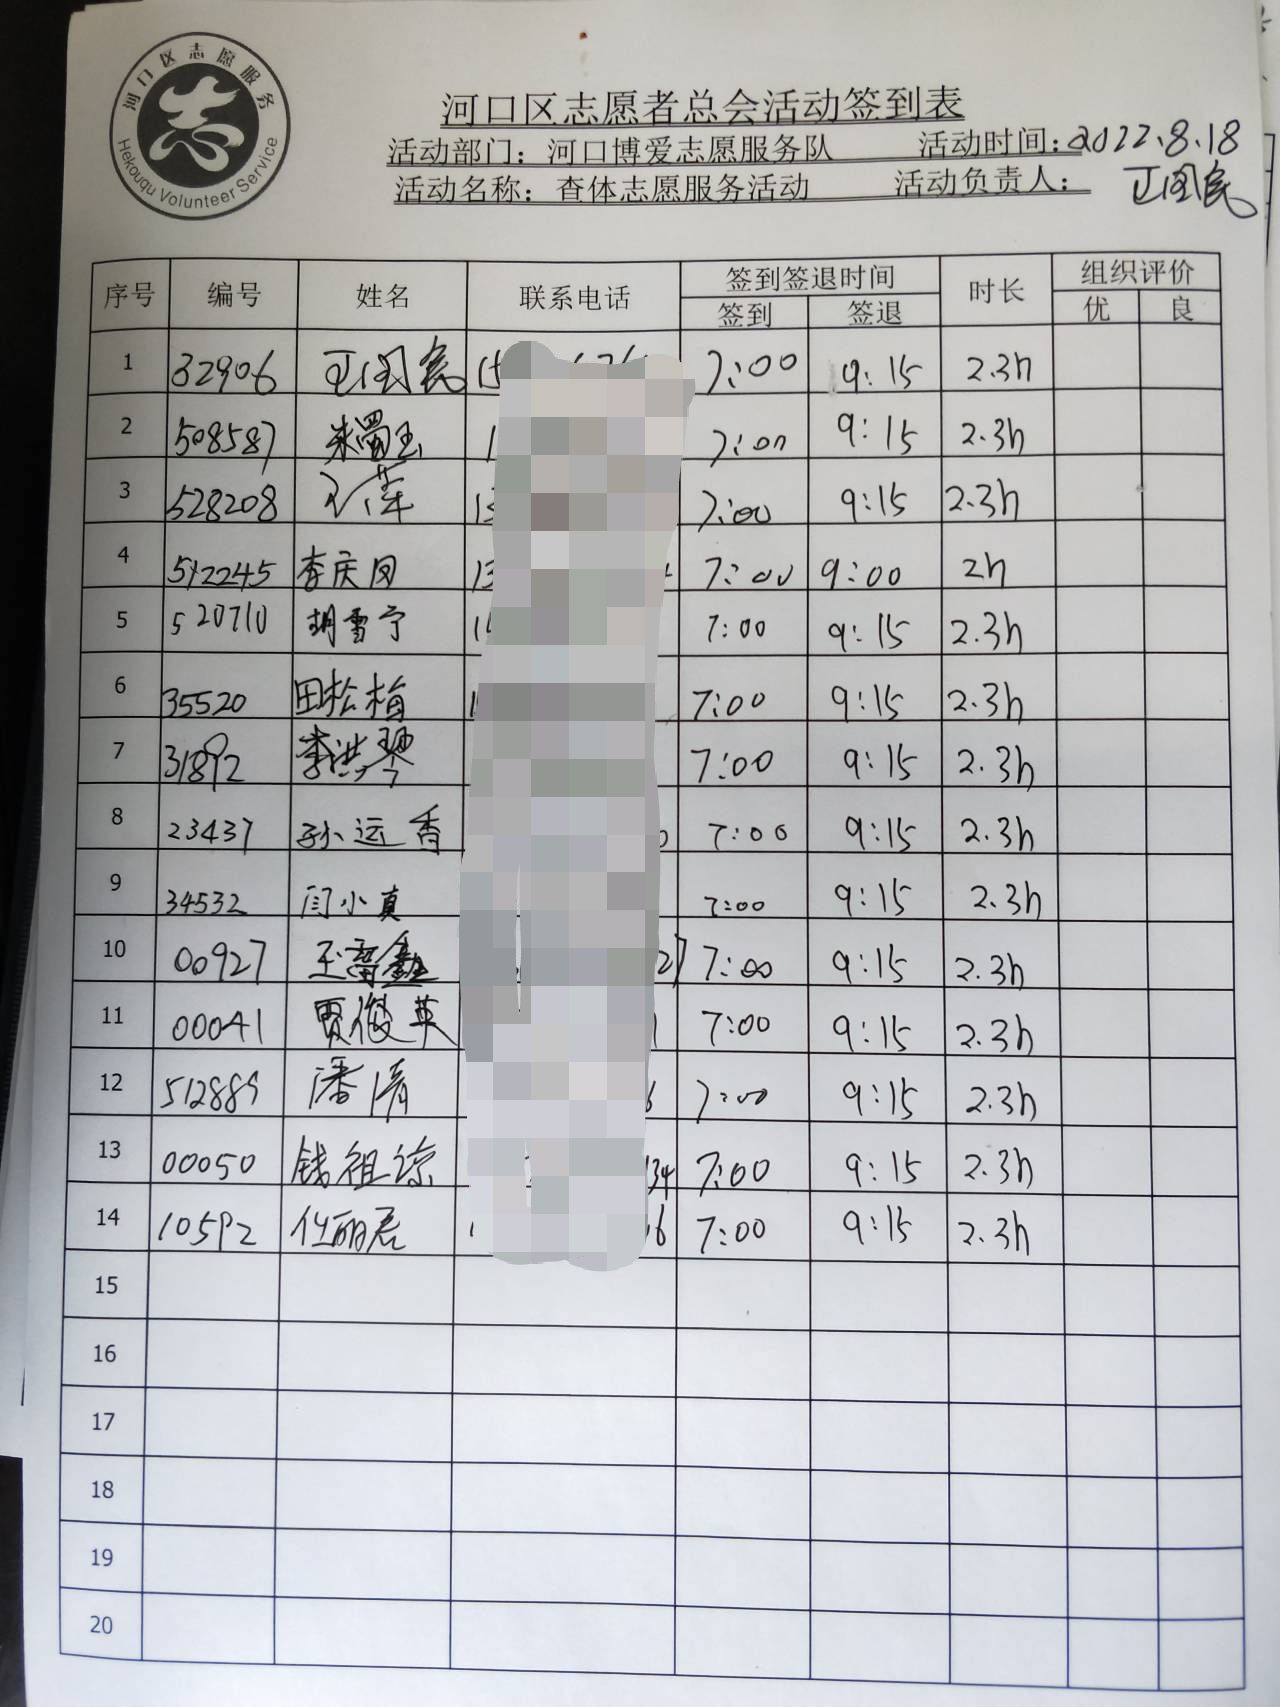 河口区志愿服务
Hekouqu Volunteer Service
河口区志愿者总会活动签到表
活动部门：河口博爱志愿服务队 活动时间：2022.8.18
活动名称：查体志愿服务活动 活动负责人：王国民
序号 编号 姓名 联系电话 签到签退时间 时长 组织评价
签到 签退 优 良
1 32906 王国民 7:00 9:15 2.3h
2 508587 朱蜀玉 7:00 9:15 2.3h
3 528208 7:00 9:15 2.3h
4 512245 李庆凤 13 7:00 9:00 2h
5 520710 胡雪宁 7:00 9:15 2.3h
6 35520 田松梅 7:00 9:15 2.3h
7 31892 李洪琴 7:00 9:15 2.3h
8 23437 孙远香 7:00 9:15 2.3h
9 34532 闫小真 7:00 9:15 2.3h
10 00927 7:00 9:15 2.3h
11 00041 贾俊英 7:00 9:15 2.3h
12 512889 潘清 7:00 9:15 2.3h
13 00050 钱祖谅 34 7:00 9:15 2.3h
14 10592 任丽君 16 7:00 9:15 2.3h
15
16
17
18
19
20